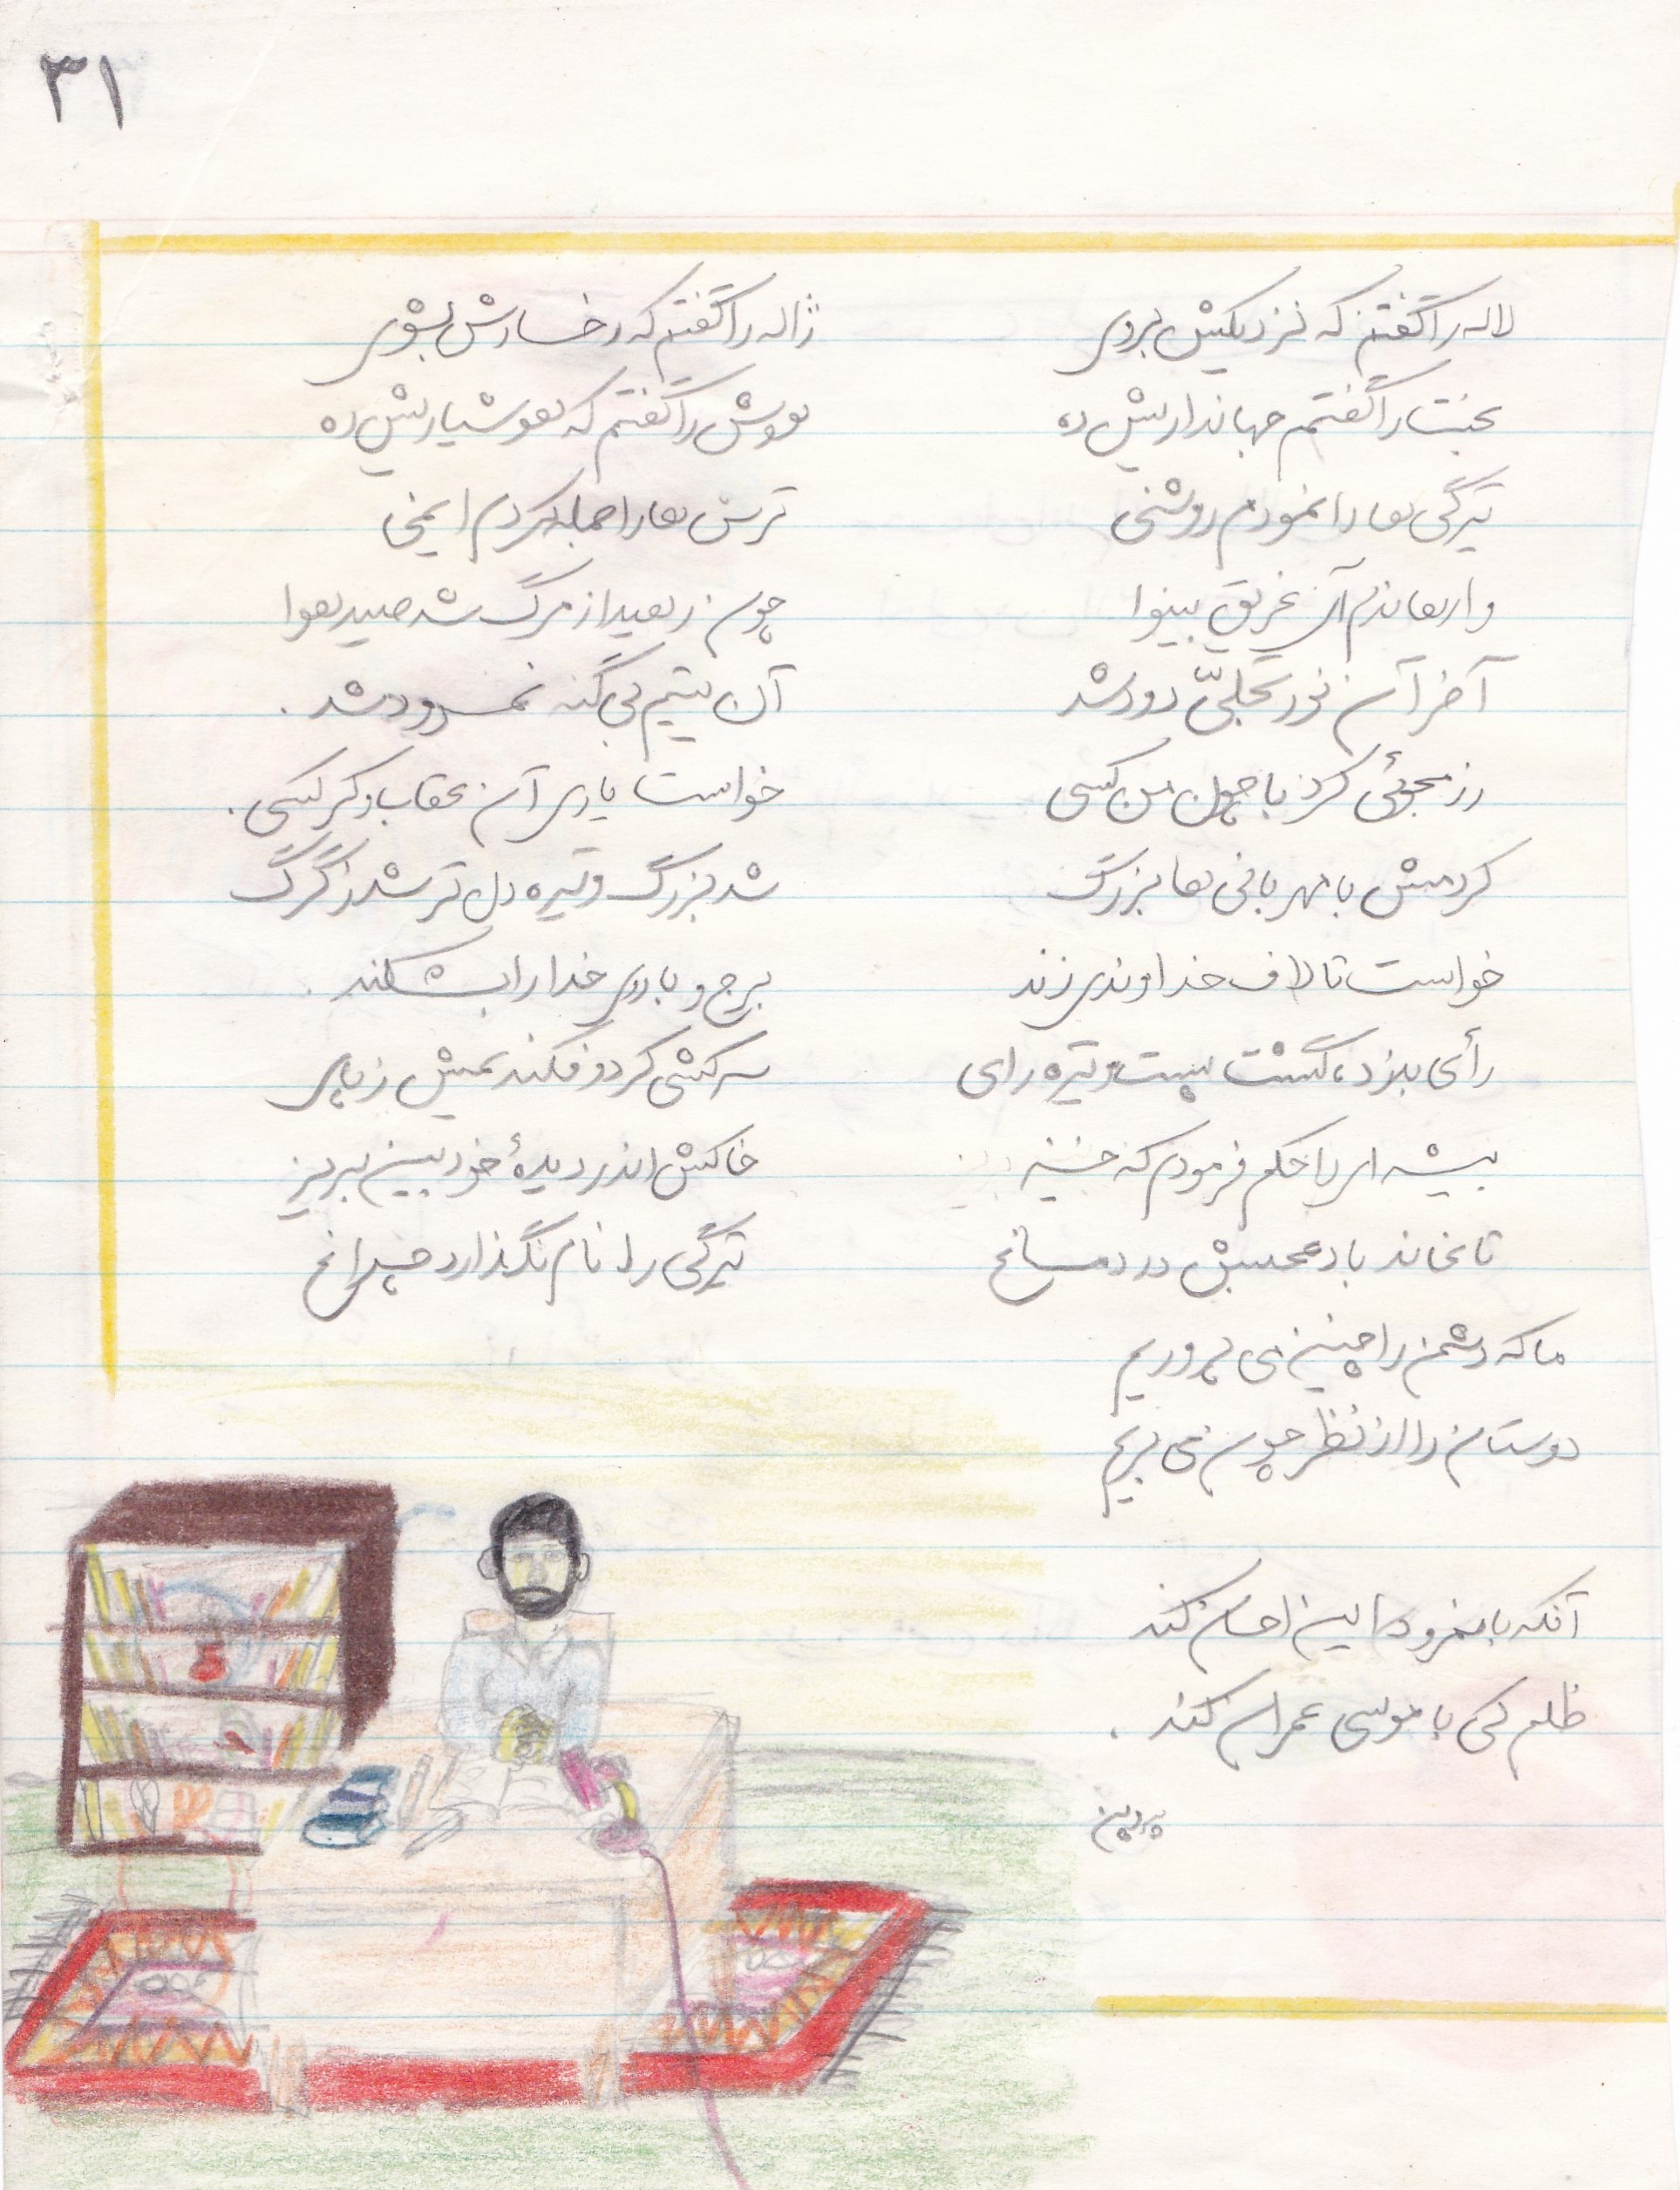 ۳۱
لاله را گفتم که نزدیکش بروی    ژاله را گفتم که رخسارش بشوی
بخت را گفتم جهانداریش ده    هوش را گفتم که هوشیاریش ده
تیرگی ها را نمودم روشنی    ترس ها را جمله کردم ایمنی
وارهاندم آن غریق بینوا    چون رهید از مرگ شد صید هوا
آخر آن نور تجلّی دود شد    آن یتیم بی گنه نمرود شد.
رزمجوئی کرد با چون من کسی    خواست یاری از عقاب و کرکسی.
کردمش با مهربانی ها بزرگ    شد بزرگ و تیره دل تر شد ز گرگ
خواست تا لاف خداوندی زند    برج و باروی خدا را بشکند.
رأی بد زد، گشت پست و تیره رای    سرکشی کرد و فکندیمش ز پای
پشه ای را حکم فرمودم که خیز    خاکش اندر دیدهٔ خودبین بریز
تا نماند باد عجبش در دماغ    تیرگی را نام نگذارد چراغ
ما که دشمن را چنین می پروریم
دوستان را از نظر چون می بریم
آنکه با نمرود این احسان کند
ظلم کی با موسی عمران کند.
پروین